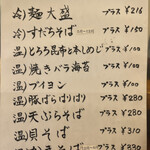 冷)麺大盛 プラス ¥216
冷)すだちそば プラス ¥150
温)とろろ昆布と本しめじ プラス ¥100
温)焼きバラ海苔 プラス ¥100
温)ブイヨン プラス ¥100
温)豚ばらばりばり プラス ¥280
温)天ぷらそば プラス ¥280
温)貝そば プラス ¥310
プラス ¥330